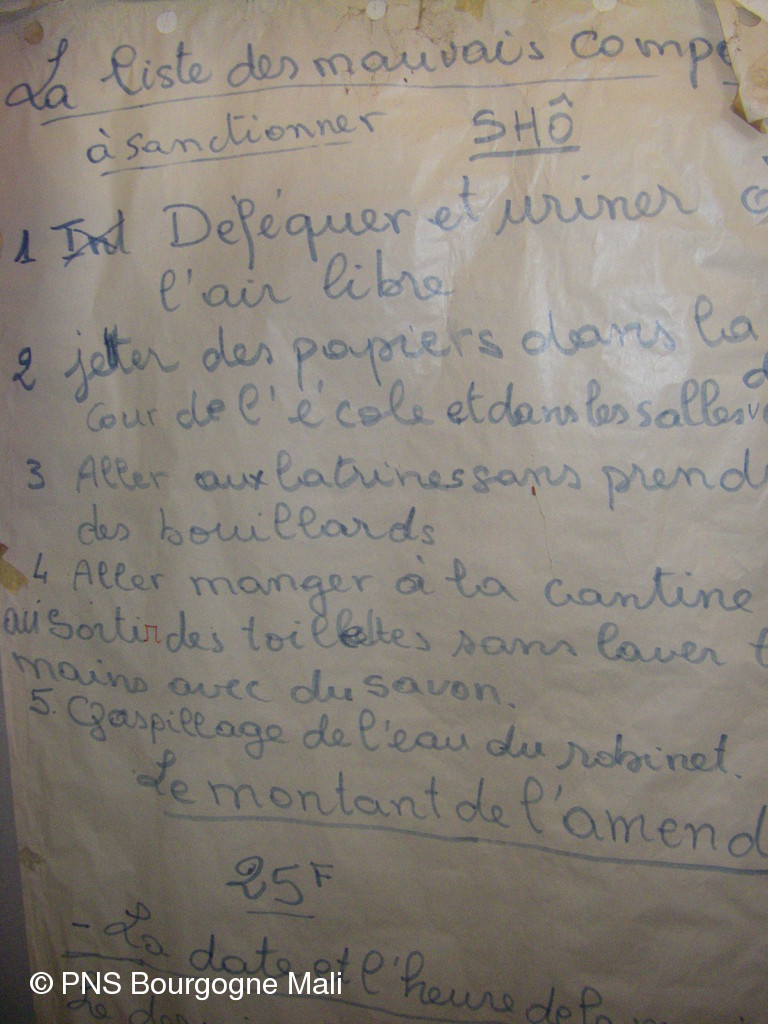 La liste des mauvais compo
à sanctionner SHÔ
1 Deféquer et uriner à
l'air libre
2 jetter des papiers dans la
cour de l'école et dans les salles
3 Aller aux latrines sans prend
des bouillards
4 Aller manger à la cantine
au sortir des toilettes sans laver
mains avec du savon.
5. Gaspillage de l'eau du robinet.
Le montant de l'amend
25F
- La date et l'heure de la
Le
© PNS Bourgogne Mali